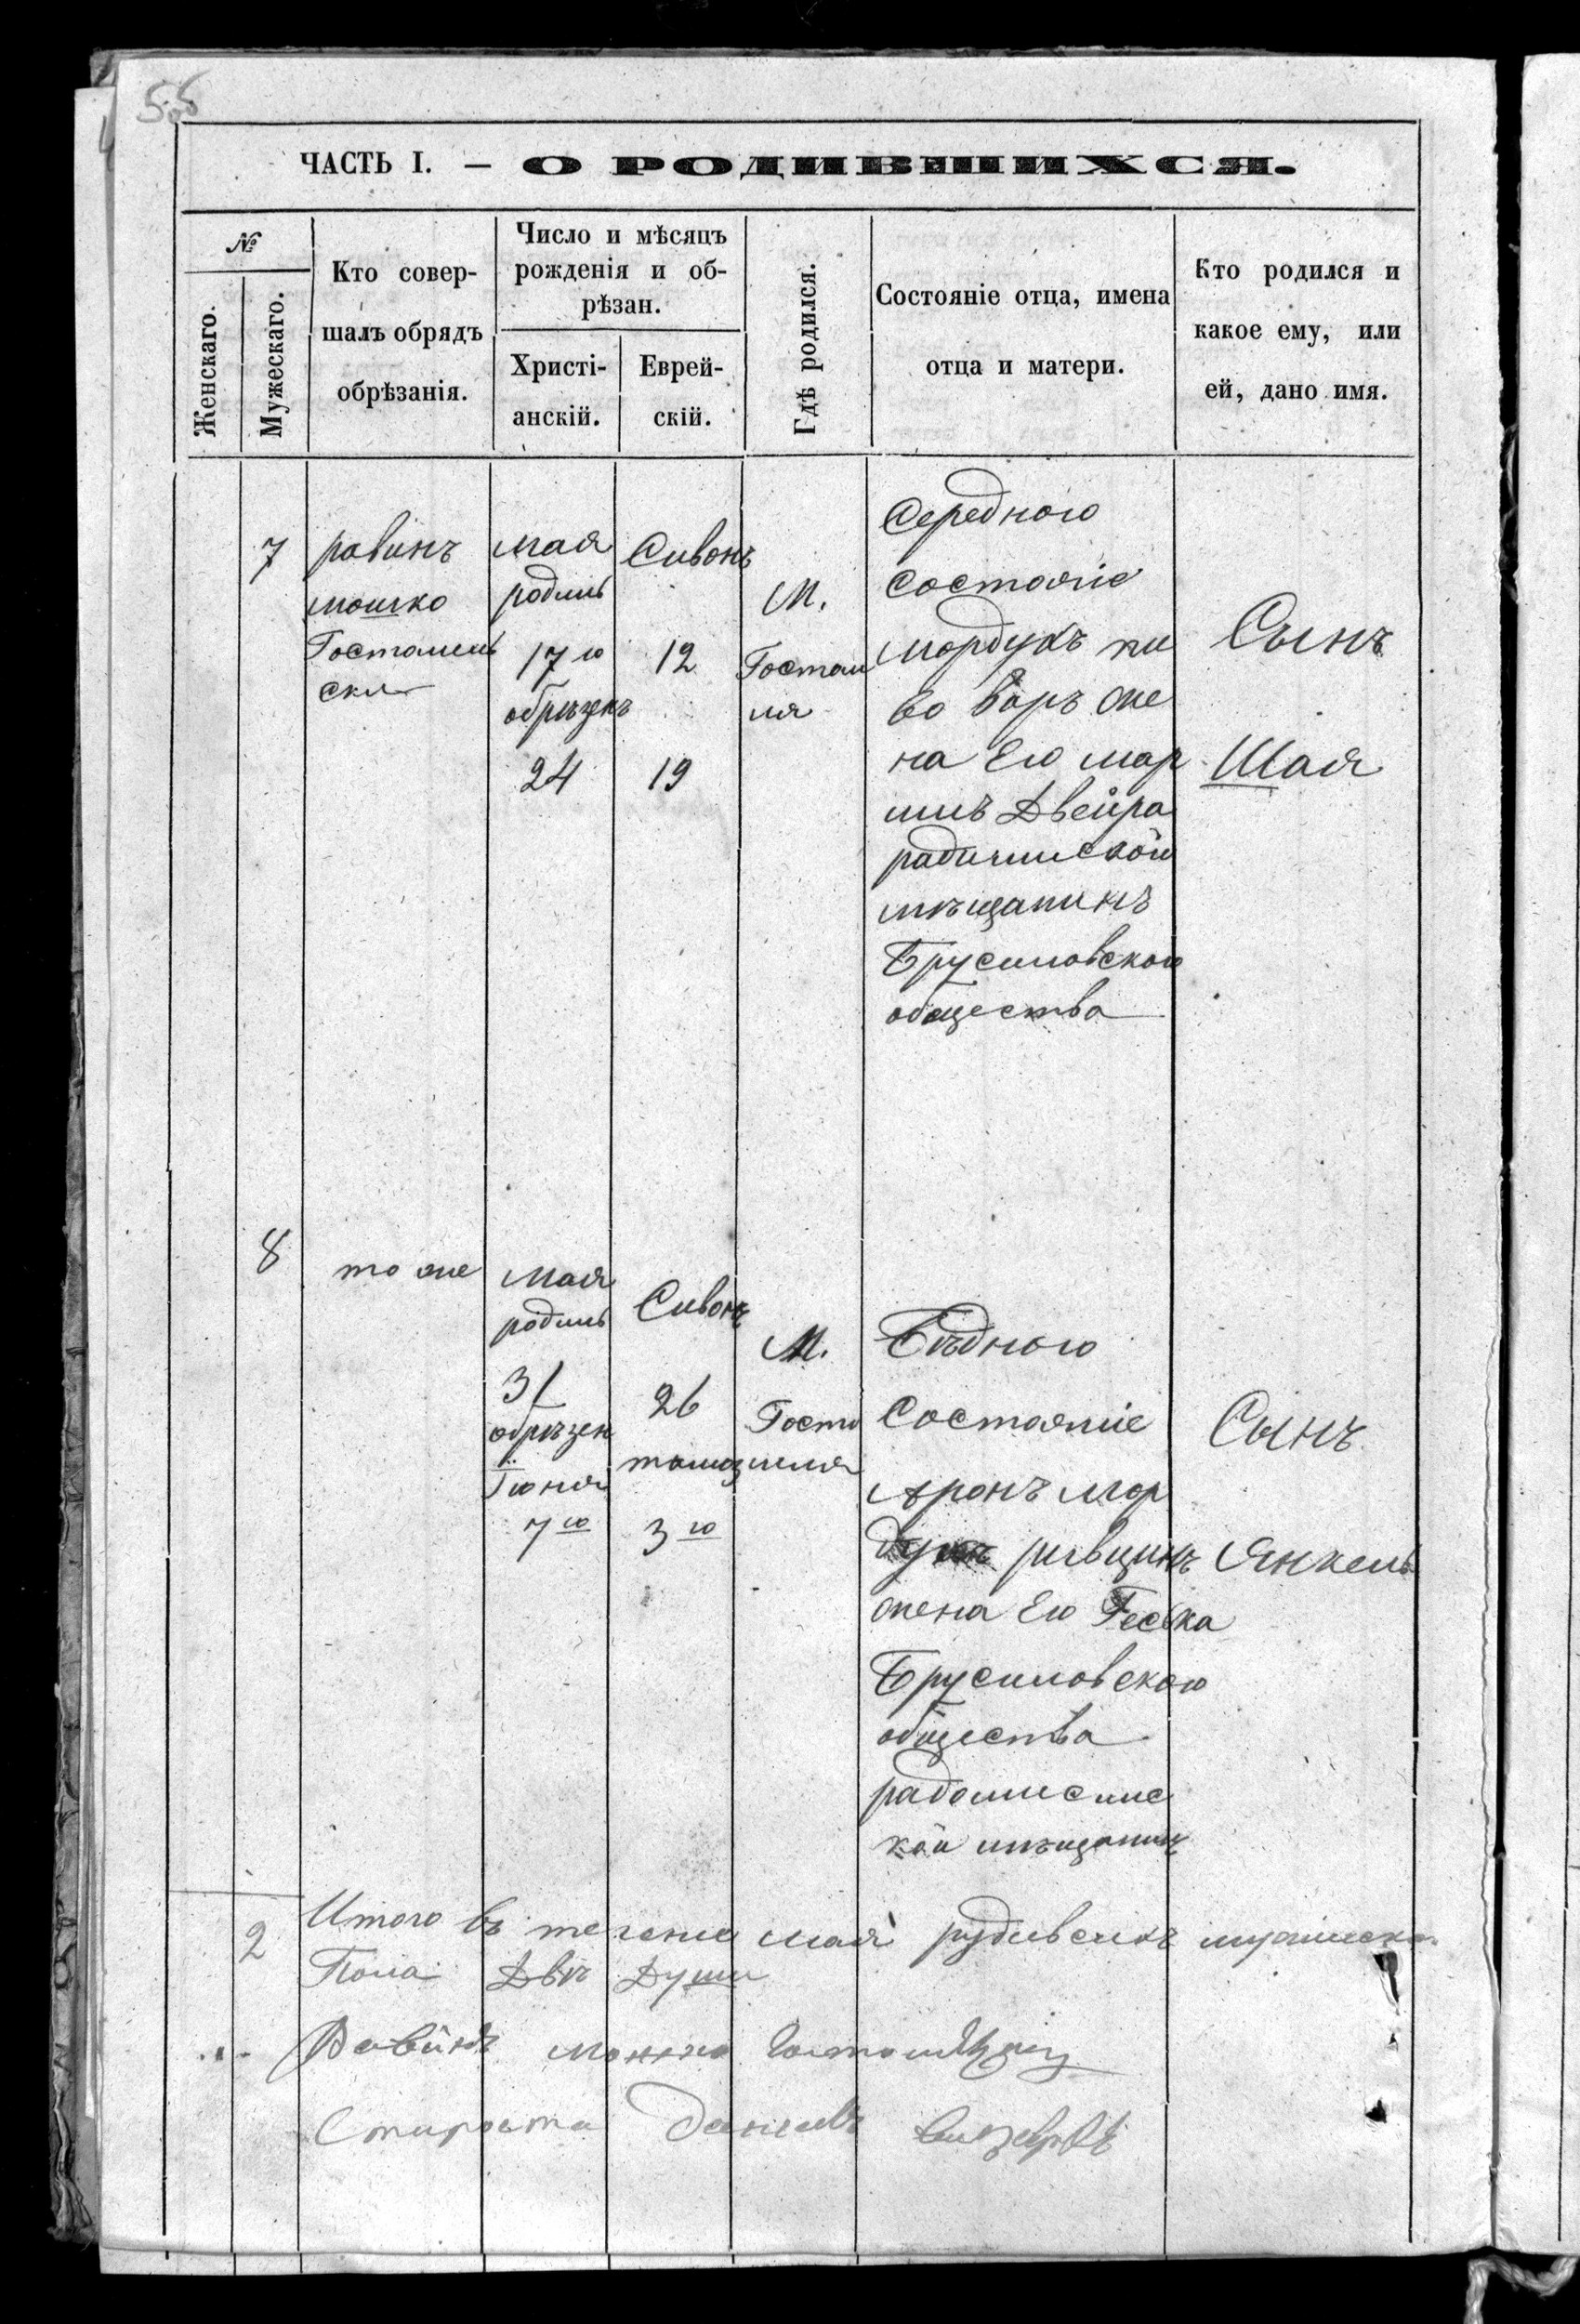 ЧАСТЬ I. — О РОДИВШИХСЯ.
№
Женскаго.
Мужескаго.
Кто совер-
шалъ обрядъ
обрѣзанія.
Число и мѣсяцъ
рожденія и об-
рѣзан.
Христі-
анскій.
Еврей-
скій.
Гдѣ родился.
Состояніе отца, имена
отца и матери.
Кто родился и
какое ему, или
ей, дано имя.
7
равинъ
мошко
Гостомель
ски
мая
родил
17 го
обрѣзанъ
24
Сивонъ
12
19
М.
Гостом
ля
Середного
состояніе
мордухъ пи
во варъ же
на его мар
Двейра
мѣщанинъ
Брусиловского
общества
Сынъ
Шая
8
то же
Мая
родил
31
обрѣзан
Іюня
7 го
Сивонъ
26
тамоз
3 го
М.
Госто
меля
Бѣдного
Состояние
Аронъ мор
дух
жена его Геська
Брусиловского
общества
радомисли
кой мѣщанин
Сынъ
Янкель
2
Итого въ течение мая мужеска
Пола Двѣ Души
Равинъ мошко
Староста